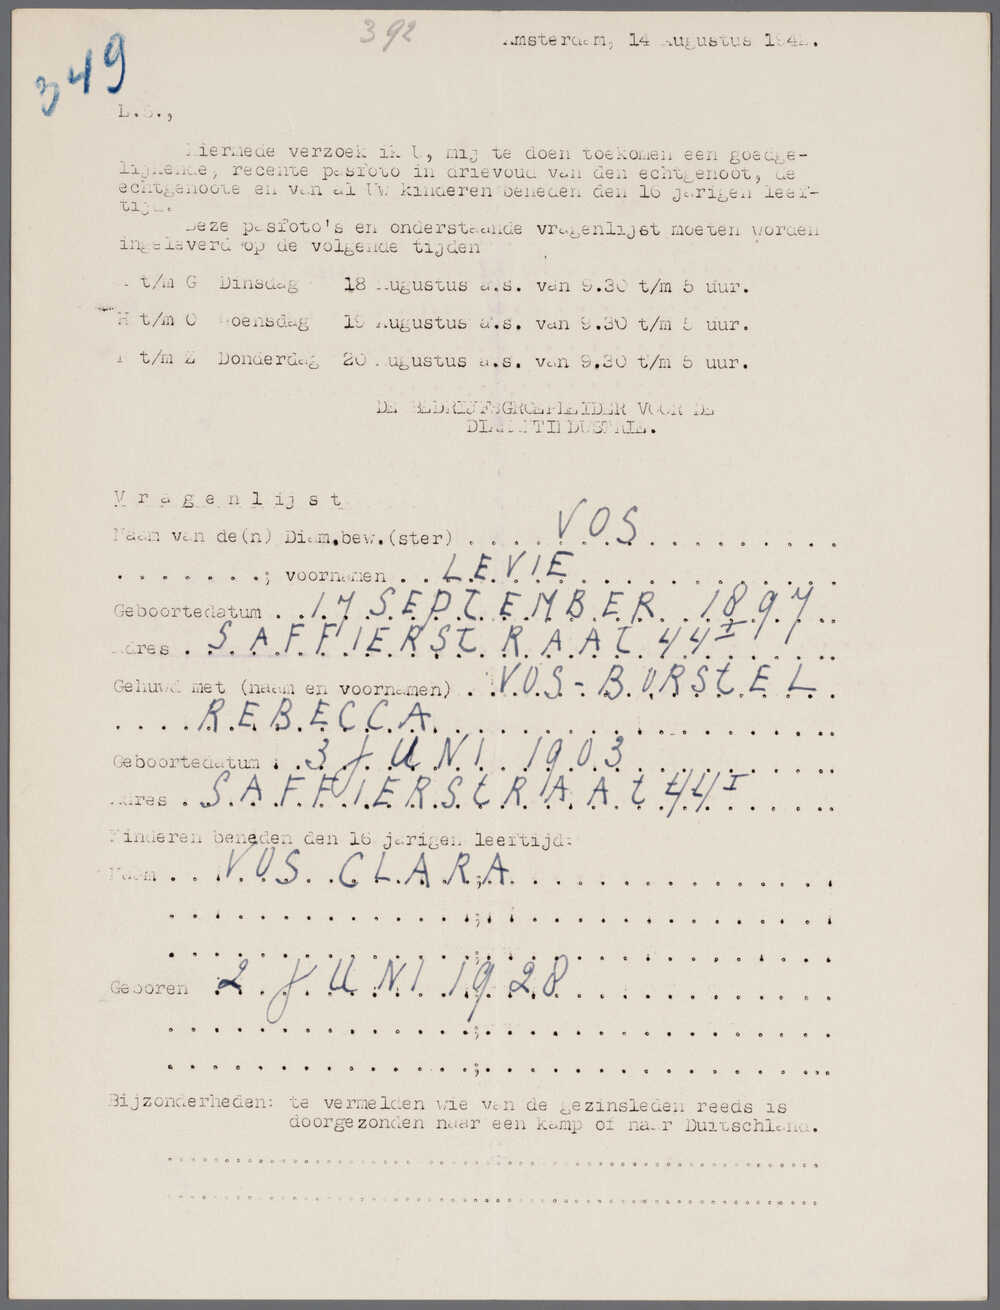 392
349
Amsterdam, 14 Augustus 1942.
L.S.,
Hiermede verzoek ik U, mij te doen toekomen een goedge-
lijkende, recente pasfoto in drievoud van den echtgenoot, de
echtgenoote en van al Uw kinderen beneden den 16 jarigen leef-
tijd.
Deze pasfoto's en onderstaande vragenlijst moeten worden
ingeleverd op de volgende tijden
A t/m G Dinsdag 18 Augustus a.s. van 9.30 t/m 5 uur.
H t/m O Woensdag 19 Augustus a.s. van 9.30 t/m 5 uur.
P t/m Z Donderdag 20 Augustus a.s. van 9.30 t/m 5 uur.
DE BEDRIJFSGROEPLEIDER VOOR DE
DIAMANTINDUSTRIE.
V r a g e n l i j s t
Naam van de(n) Diam.bew.(ster) VOS
; voornamen LEVIE
Geboortedatum 17 SEPTEMBER 1897
Adres SAFFIERSTRAAT 44 I
Gehuwd met (naam en voornamen) VOS-BORSTEL
REBECCA
Geboortedatum 3 JUNI 1903
Adres SAFFIERSTRAAT 44 I
Kinderen beneden den 16 jarigen leeftijd:
Naam VOS CLARA
Geboren 2 JUNI 1928
Bijzonderheden: te vermelden wie van de gezinsleden reeds is
doorgezonden naar een kamp of naar Duitschland.